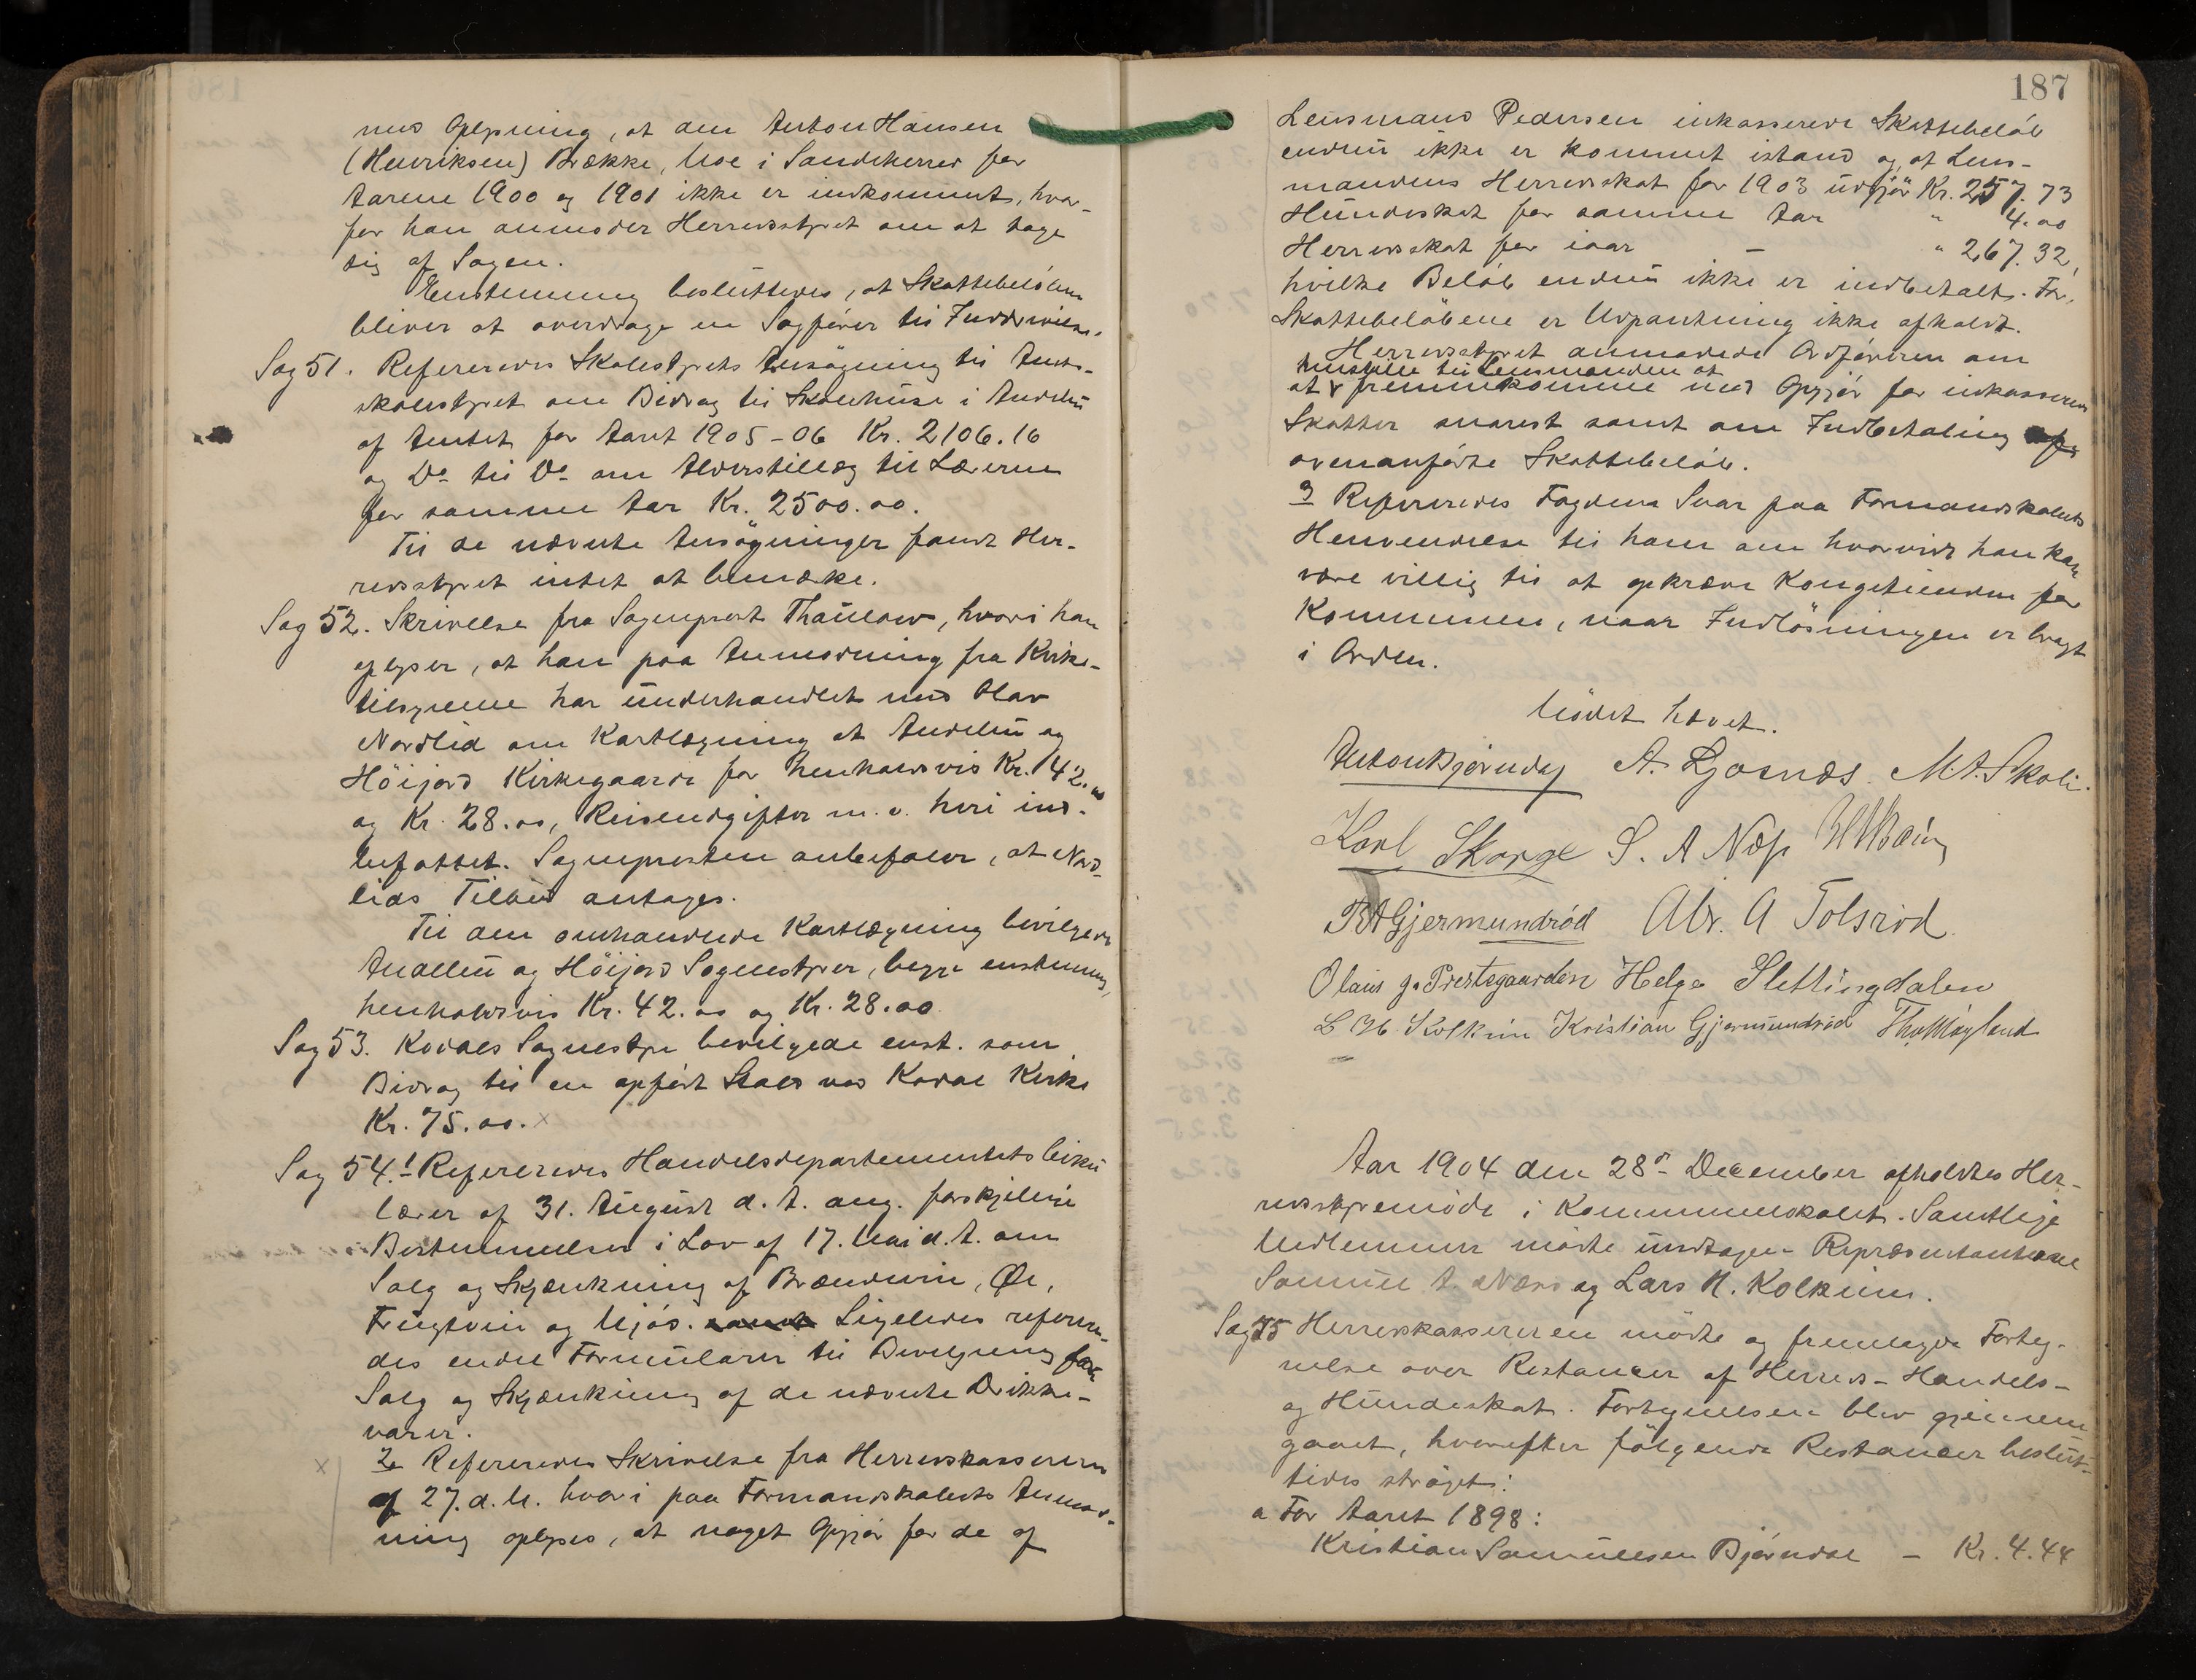 med Oplysning, at den Anton Hansen
(Henriksen) Brække, Moe i Sandeherred for
Aarene 1900 og 1901 ikke er indkommet, hvor-
for han anmoder Herredsstyret om at tage
sig af Sagen.
Enstemmig besluttedes, at Skattebeløbene
bliver at overdrage en Sagfører til Inddrivelse.
Sag 51. Refereredes Skolestyrets Ansøgning til Amts-
skolestyret om Bidrag til Skolehuse i Andebu
af Amtet for Aaret 1905-06 Kr. 2106.16
og Do til Do om Alderstillæg til Lærerne
for samme Aar Kr. 2500.00.
Til de nævnte Ansøgninger fandt Her-
redsstyret intet at bemærke.
Sag 52. Skrivelse fra Sogneprest Thaulow, hvori han
oplyser, at han paa Anmodning fra Kirke-
tilsynene har underhandlet med Olav
Nordlid om Kartlægning af Andebu og
Höijord Kirkegaarde for henholdsvis Kr. 42.00
og Kr. 28.00, Reiseudgifter m.v. heri ind-
befattet. Sognepresten anbefaler, at Nord-
lids Tilbud antages.
Til den omhandlede Kartlægning bevilgede
Andebu og Höijord Sognestyrer, begge enstemmig,
henholdsvis Kr. 42.00 og Kr. 28.00
Sag 53. Kodals Sognestyre bevilgede enst. som
Bidrag til en opført Stald ved Kodal Kirke
Kr. 75.00. x
Sag 54. 1 Refereredes Handelsdepartementets Cirku
lærer af 31. August d. A. ang. forskjellige
Bestemmelser i Lov af 17. Mai d. A. om
Salg og Skjænkning af Brændevin, Øl,
Frugtvin og Mjød. Ligeledes referere-
des endel Formularer til Bevilgning for
Salg og Skjænkning af de nævnte Drikke-
varer.
x 2 Refereredes Skrivelse fra Herredskassereren
af 27. d. M. hvori paa Formandskabets Anmod-
ning oplyses, at noget Opgjør for de af
187
Lensmand Pedersen inkasserede Skattebeløb
endnu ikke er kommet istand og at Lens-
mandens Herredsskat for 1903 udgjør Kr. 257.73
Hundeskat for samme Aar " 4.00
Herredsskat for iaar — " 267.32,
hvilke Beløb endnu ikke er indbetalt. For
Skattebeløbene er Udpantning ikke afholdt.
Herredsstyret anmodede Ordføreren om
henstille til Lensmanden at
at fremkomme med Opgjør for inkasserede
Skatter snarest samt om Indbetaling af
ovenanførte Skattebeløb.
3 Refereredes Fogdens Svar paa Formandskabets
Henvendelse til ham om hvorvidt han kan
være villig til at opkræve Kongetienden for
Kommunen, naar Indløsningen er bragt
i Orden.
Mödet hævet.
Anton Bjørndal A. Ljosnæs. M. A. Skoli.
Karl Skorge S. A Næs
B A Gjermundrød Abr. A Tolsrød
Olaus J. Prestegaarden Helge Slettingdalen
L H Kolkinn Kristian Gjermundrød Th. Møyland
Aar 1904 den 28de December afholdtes Her-
redsstyremøde i Kommunelokalet. Samtlige
Medlemmer mødte undtagen Repræsentanterne
Samuel A. Næss og Lars H. Kolkinn.
Sag 75 Herredskassereren mødte og fremlagde Forteg-
nelse over Restancer af Herreds- Handels-
og Hundeskat. Fortegnelsen blev gjennem
gaaet, hvorefter følgende Restancer beslut-
tedes strøget:
a For Aaret 1898:
Kristian Samuelsen Bjørndal — Kr. 4.44